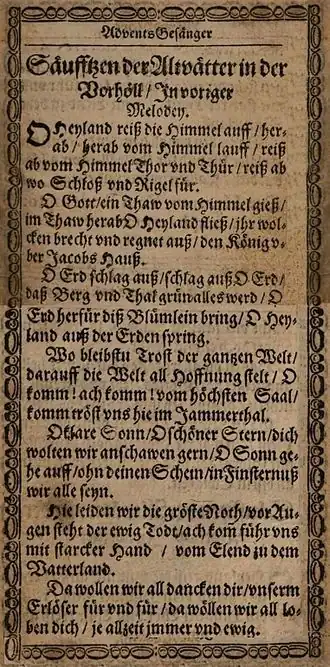 Advents Gesänger
Säufftzen der Altvätter in der
Vorhöll / In voriger
Melodey.
O Heyland reiß die Himmel auff / her-
ab / herab vom Himmel lauff / reiß
ab vom Himmel Thor vnd Thür / reiß ab
wo Schloß vnd Rigel für.
O Gott / ein Thaw vom Himmel gieß /
im Thaw herab O Heyland fließ / jhr wol-
cken brecht vnd regnet auß / den König v-
ber Jacobs Hauß.
O Erd schlag auß / schlag auß O Erd /
daß Berg vnd Thal grün alles werd / O
Erd herfür diß Blümlein bring / O Hey-
land auß der Erden spring.
Wo bleibstu Trost der gantzen Welt /
darauff die Welt all Hoffnung stelt / O
komm! ach komm! vom höchsten Saal /
komm tröst vns hie im Jammerthal.
O klare Sonn / O schöner Stern / dich
wolten wir anschawen gern / O Sonn ge-
he auff / ohn deinen Schein / in Finsternuß
wir alle seyn.
Hie leiden wir die gröste Noth / vor Au-
gen steht der ewig Todt / ach kom führ vns
mit starcker Hand / vom Elend zu dem
Vatterland.
Da wollen wir all dancken dir / vnserm
Erlöser für vnd für / da wöllen wir all lo-
ben dich / je allzeit jmmer vnd ewig.